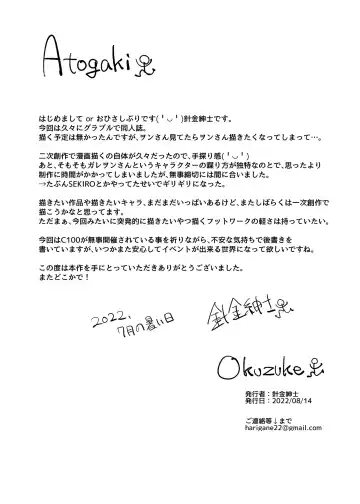 Atogaki
はじめまして or おひさしぶりです(╹◡╹)針金紳士です。
今回は久々にグラブルで同人誌。
描く予定は無かったんですが、ヲンさん見てたらヲンさん描きたくなってしまって…。
二次創作で漫画描くの自体が久々だったので、手探り感(╹◡╹)
あと、そもそもガレヲンさんというキャラクターの喋り方が独特なのとで、思ったより
制作に時間がかかってしまいましたが、無事締切には間に合いました。
→たぶんSEKIROとかやってたせいでギリギリになった。
描きたい作品や描きたいキャラ、まだまだいっぱいあるけど、またしばらくは一次創作で
描こうかなと思ってます。
ただまぁ、今回みたいに突発的に描きたいやつ描くフットワークの軽さは持っていたい。
今回はC100が無事開催されている事を祈りながら、不安な気持ちで後書きを
書いていますが、いつかまた安心してイベントが出来る世界になって欲しいですね。
この度は本作を手にとっていただきありがとうございました。
またどこかで！
2022.
7月の暑い日
針金紳士
Okuzuke
発行者：針金紳士
発行日：2022/08/14
ご連絡等↓まで
harigane22@gmail.com